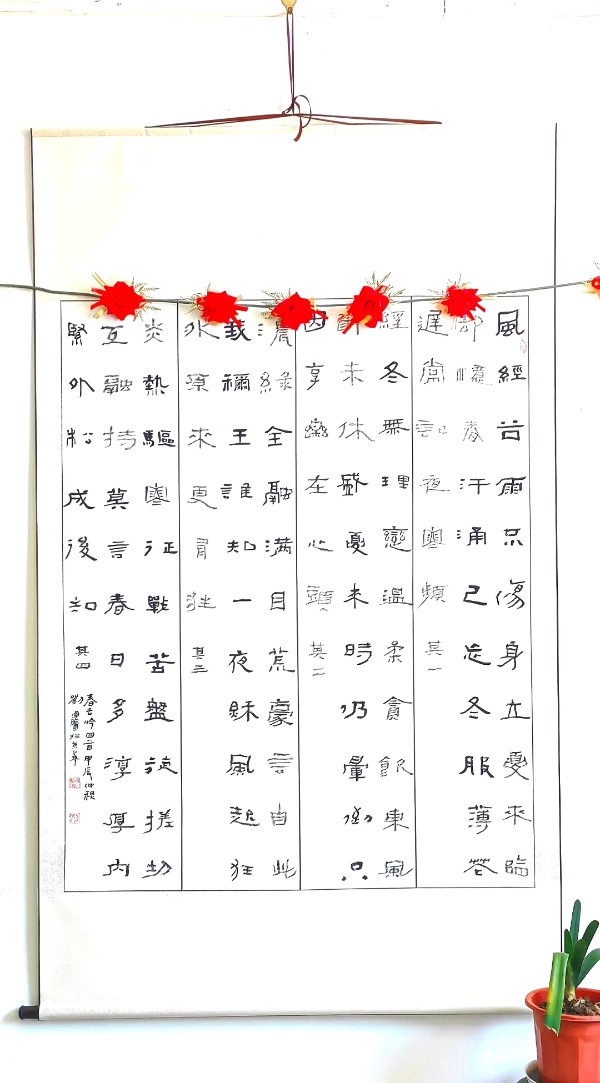 風經谷雨只傷身立夏來臨
卻憶春汗涌已忘冬服薄花
遲嘗記夜寒頻 其一
經冬無理戀溫柔貪飲東風
醉未休盛夏來時仍暈倒只
因享樂在心頭 其二
濃綠全融滿目荒豪言自此
我稱王誰知一夜秋風起狂
外原來更有狂 其三
炎熱驅寒征戰苦盤旋搓劫
互融持莫言春日多淳厚内
緊外松成後知 其四
春去吟四首甲辰仲
劉